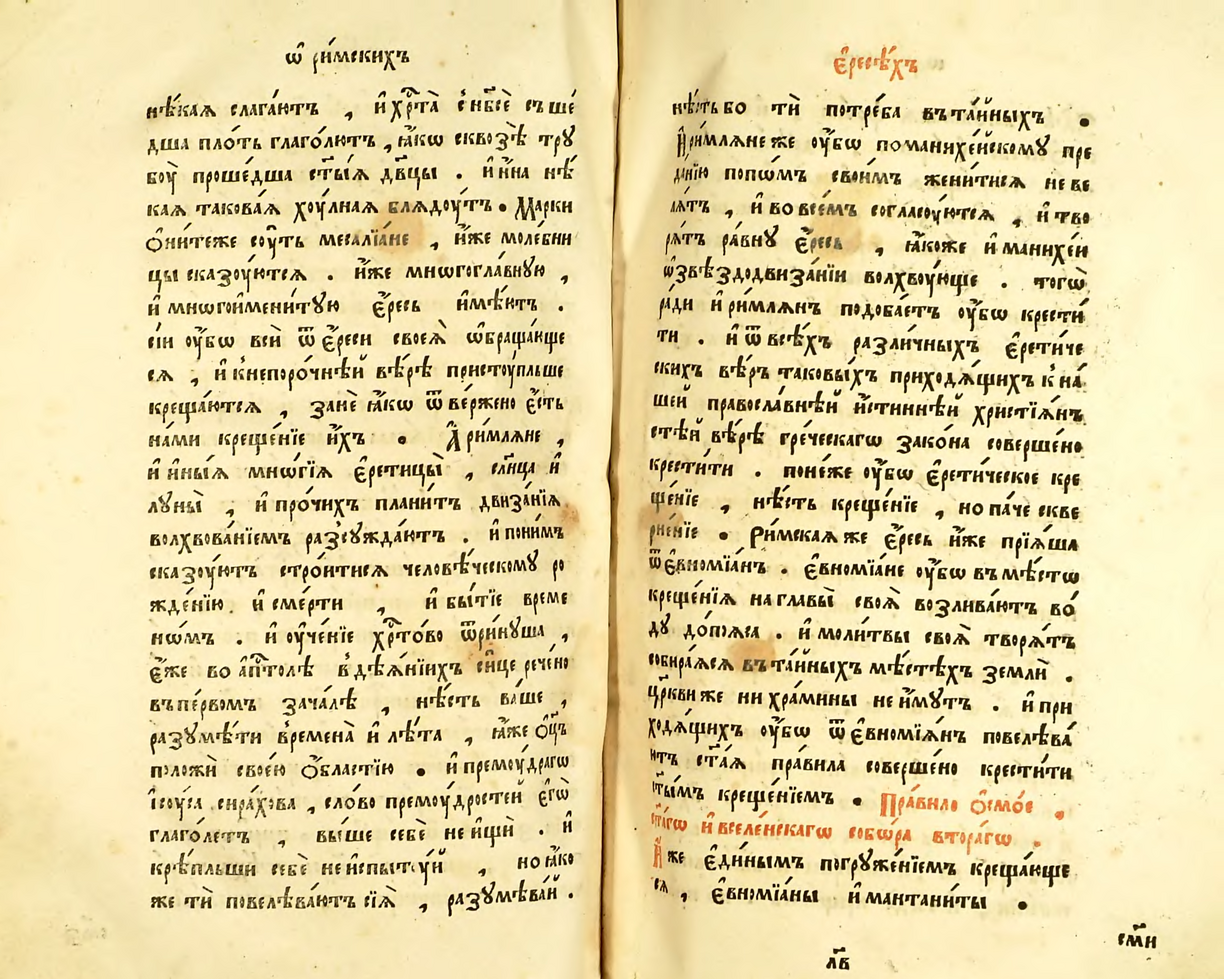 ѡ҆ ри́мскихъ
нѣ́кая слага́ютъ , и҆ хрⷭ҇та̀ с̾ нб҃сѐ съше́
дша пло́ть глаго́лютъ , ꙗ҆́кѡ сквозѣ̀ трꙋ
боу̀ проше́дша ст҃ы́ѧ дв҃цы . и҆ и҆́на нѣ́
каѧ такова́ѧ хоу́лнаѧ блѧдоу́тъ • Марки
ѻ҆ни́теже соу́ть месалїа́не , и҆́же моле́бни
цы сказоу́ютсѧ . и҆́же мнѡгогла́внꙋю ,
и҆ мнѡгоимени́тꙋю є҆́ресь и҆мѣ́ютъ .
сі́и оу҆́бѡ всѝ ѿ є҆́реси своеѧ̀ ѡ҆браща́юще
сѧ , и҆ к̾непоро́чнѣй вѣ́рѣ пристоу́пльше
креща́ютсѧ , занѐ ꙗ҆́кѡ ѿве́ржено є҆́сть
на́ми креще́нїе и҆́хъ • А҆ ри́млѧне ,
и҆ и҆ны́ѧ мнѡ́гїѧ є҆ретицы̀ , сл҃нца и҆
лꙋны̀ , и҆ про́чихъ плани́тъ двиза́нїѧ
волхвова́нїемъ разсꙋжда́ютъ . и҆ пони́мъ
сказоу́ютъ стро́итисѧ человѣ́ческомꙋ ро
жде́нїю . и҆ сме́рти , и҆ бытїѐ време
нѡ́мъ . и҆ оу҆че́нїе хрⷭ҇то́во ѿри́нꙋша ,
є҆́же во а҆пⷭ҇толѣ в̾дѣѧ́нїихъ си́це рече́но
въпе́рвомъ зача́лѣ , нѣ́сть ва́ше ,
разꙋмѣ́ти в̾ремена̀ и҆ лѣ́та , ꙗ҆́же ѻ҆ц҃ъ
положѝ свое́ю ѻ҆́бластїю • и҆ премоу́драгѡ
і҆соу́са сира́хова , сло́во премоу́дростей є҆гѡ̀
глаго́летъ , вы́ше себѐ не и҆щѝ . и҆
крѣ́пльши себѐ не и҆спытоу́й , но ꙗ҆́ко
же тѝ повелѣва́ютъ сїѧ̀ , разꙋмѣва́й .
є҆́ресѣ́хъ
нѣ́сть бо тѝ потре́ба въ та́йныхъ •
И҆ ри́млѧне же оу҆́бѡ по манихе́йскомꙋ пре
да́нїю попѡ́мъ свои́мъ жени́тисѧ не ве
лѧ́тъ , и҆ во все́мъ согласоу́ютсѧ , и҆ тво
рѧ́тъ ра́внꙋ є҆́ресь , ꙗ҆́коже и҆ манихе́и
ѡ҆ звѣздодвиза́нїи волхвоу́юще . тогѡ̀
ра́ди и҆ ри́млѧнъ подоба́етъ оу҆́бѡ крести́
ти . и҆ ѿ всѣ́хъ разли́чныхъ є҆рети́че
скихъ вѣ́ръ таковы́хъ приходѧ́щихъ к̾ на́
шей правосла́внѣй и҆́стиннѣй христїѧ́нъ
стѣй вѣ́рѣ гре́ческагѡ зако́на соверше́но
крести́ти . поне́же оу҆́бѡ є҆рети́ческое кре
ще́нїе , нѣ́сть креще́нїе , но па́че скве
рне́нїе • Ри́мскаѧ же є҆́ресь и҆́же прїѧ́ша
ѿ є҆вномїа́нъ . є҆вномїа́не оу҆́бѡ въ мѣ́стѡ
креще́нїѧ на главы̀ своѧ̀ возлива́ютъ во́
дꙋ до́поѧса . и҆ моли́твы своѧ̀ творѧ́тъ
собира́ѧсѧ въ та́йныхъ мѣ́стѣхъ землѝ .
цр҃кви же ни хра́мины не и҆́мꙋтъ . и҆ при
ходѧ́щихъ оу҆́бѡ ѿ є҆вномїѧ́нъ повелѣва́
итъ ст҃а́ѧ пра́вила соверше́но крести́ти
ст҃ы́мъ креще́нїемъ • Пра́вило ѻ҆смо́е .
ст҃а́гѡ и҆ вселе́нскагѡ собѡ́ра втора́гѡ .
И҆́же є҆ди́нымъ погрꙋже́нїемъ креща́юще
сѧ , є҆вномїа́ны и҆ мантани́ты •
сми
лв